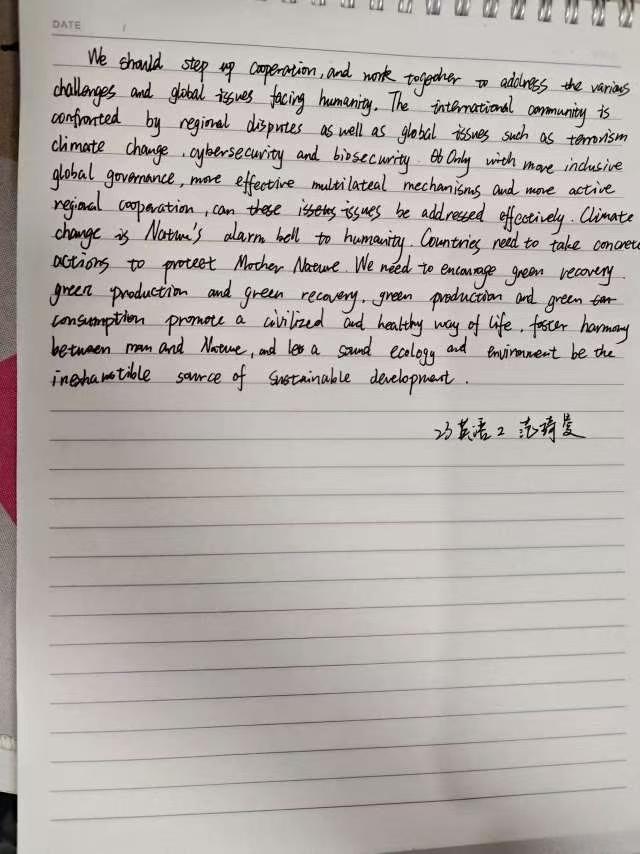 DATE /
We should step up cooperation, and work togegher to address the various
challenges and global issues facing humanity. The international community is
confronted by regional disputes as well as global issues such as terrorism
climate change, cybersecurity and biosecurity. Only with more inclusive
global governance, more effective multilateal mechanisms and more active
regional cooperation, can these issues be addressed effectively. Climate
change is Nature's alarm bell to humanity. Countries need to take concrete
actions to protect Mother Nature. We need to encourage green recovery.
green production and green recovery, green production and green
consumption promote a civilized and healthy way of life, foster harmony
between man and Nature, and let a sound ecology and environment be the
inexhaustible source of sustainable development.
23英语2 范琦曼